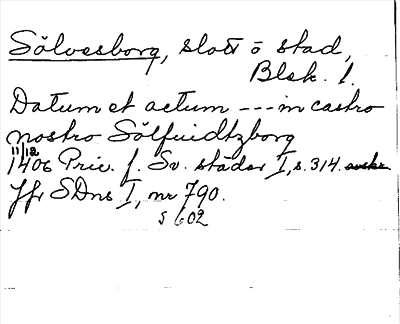 Sölvesborg, slott o stad,
Blek. l.
Datum et actum --- in castro
nostro Sölfuidtzborg
11/12
1406 Priv. f. Sv. städer I, s. 314. avskr.
Jfr SDns I, nr 790.
s 602